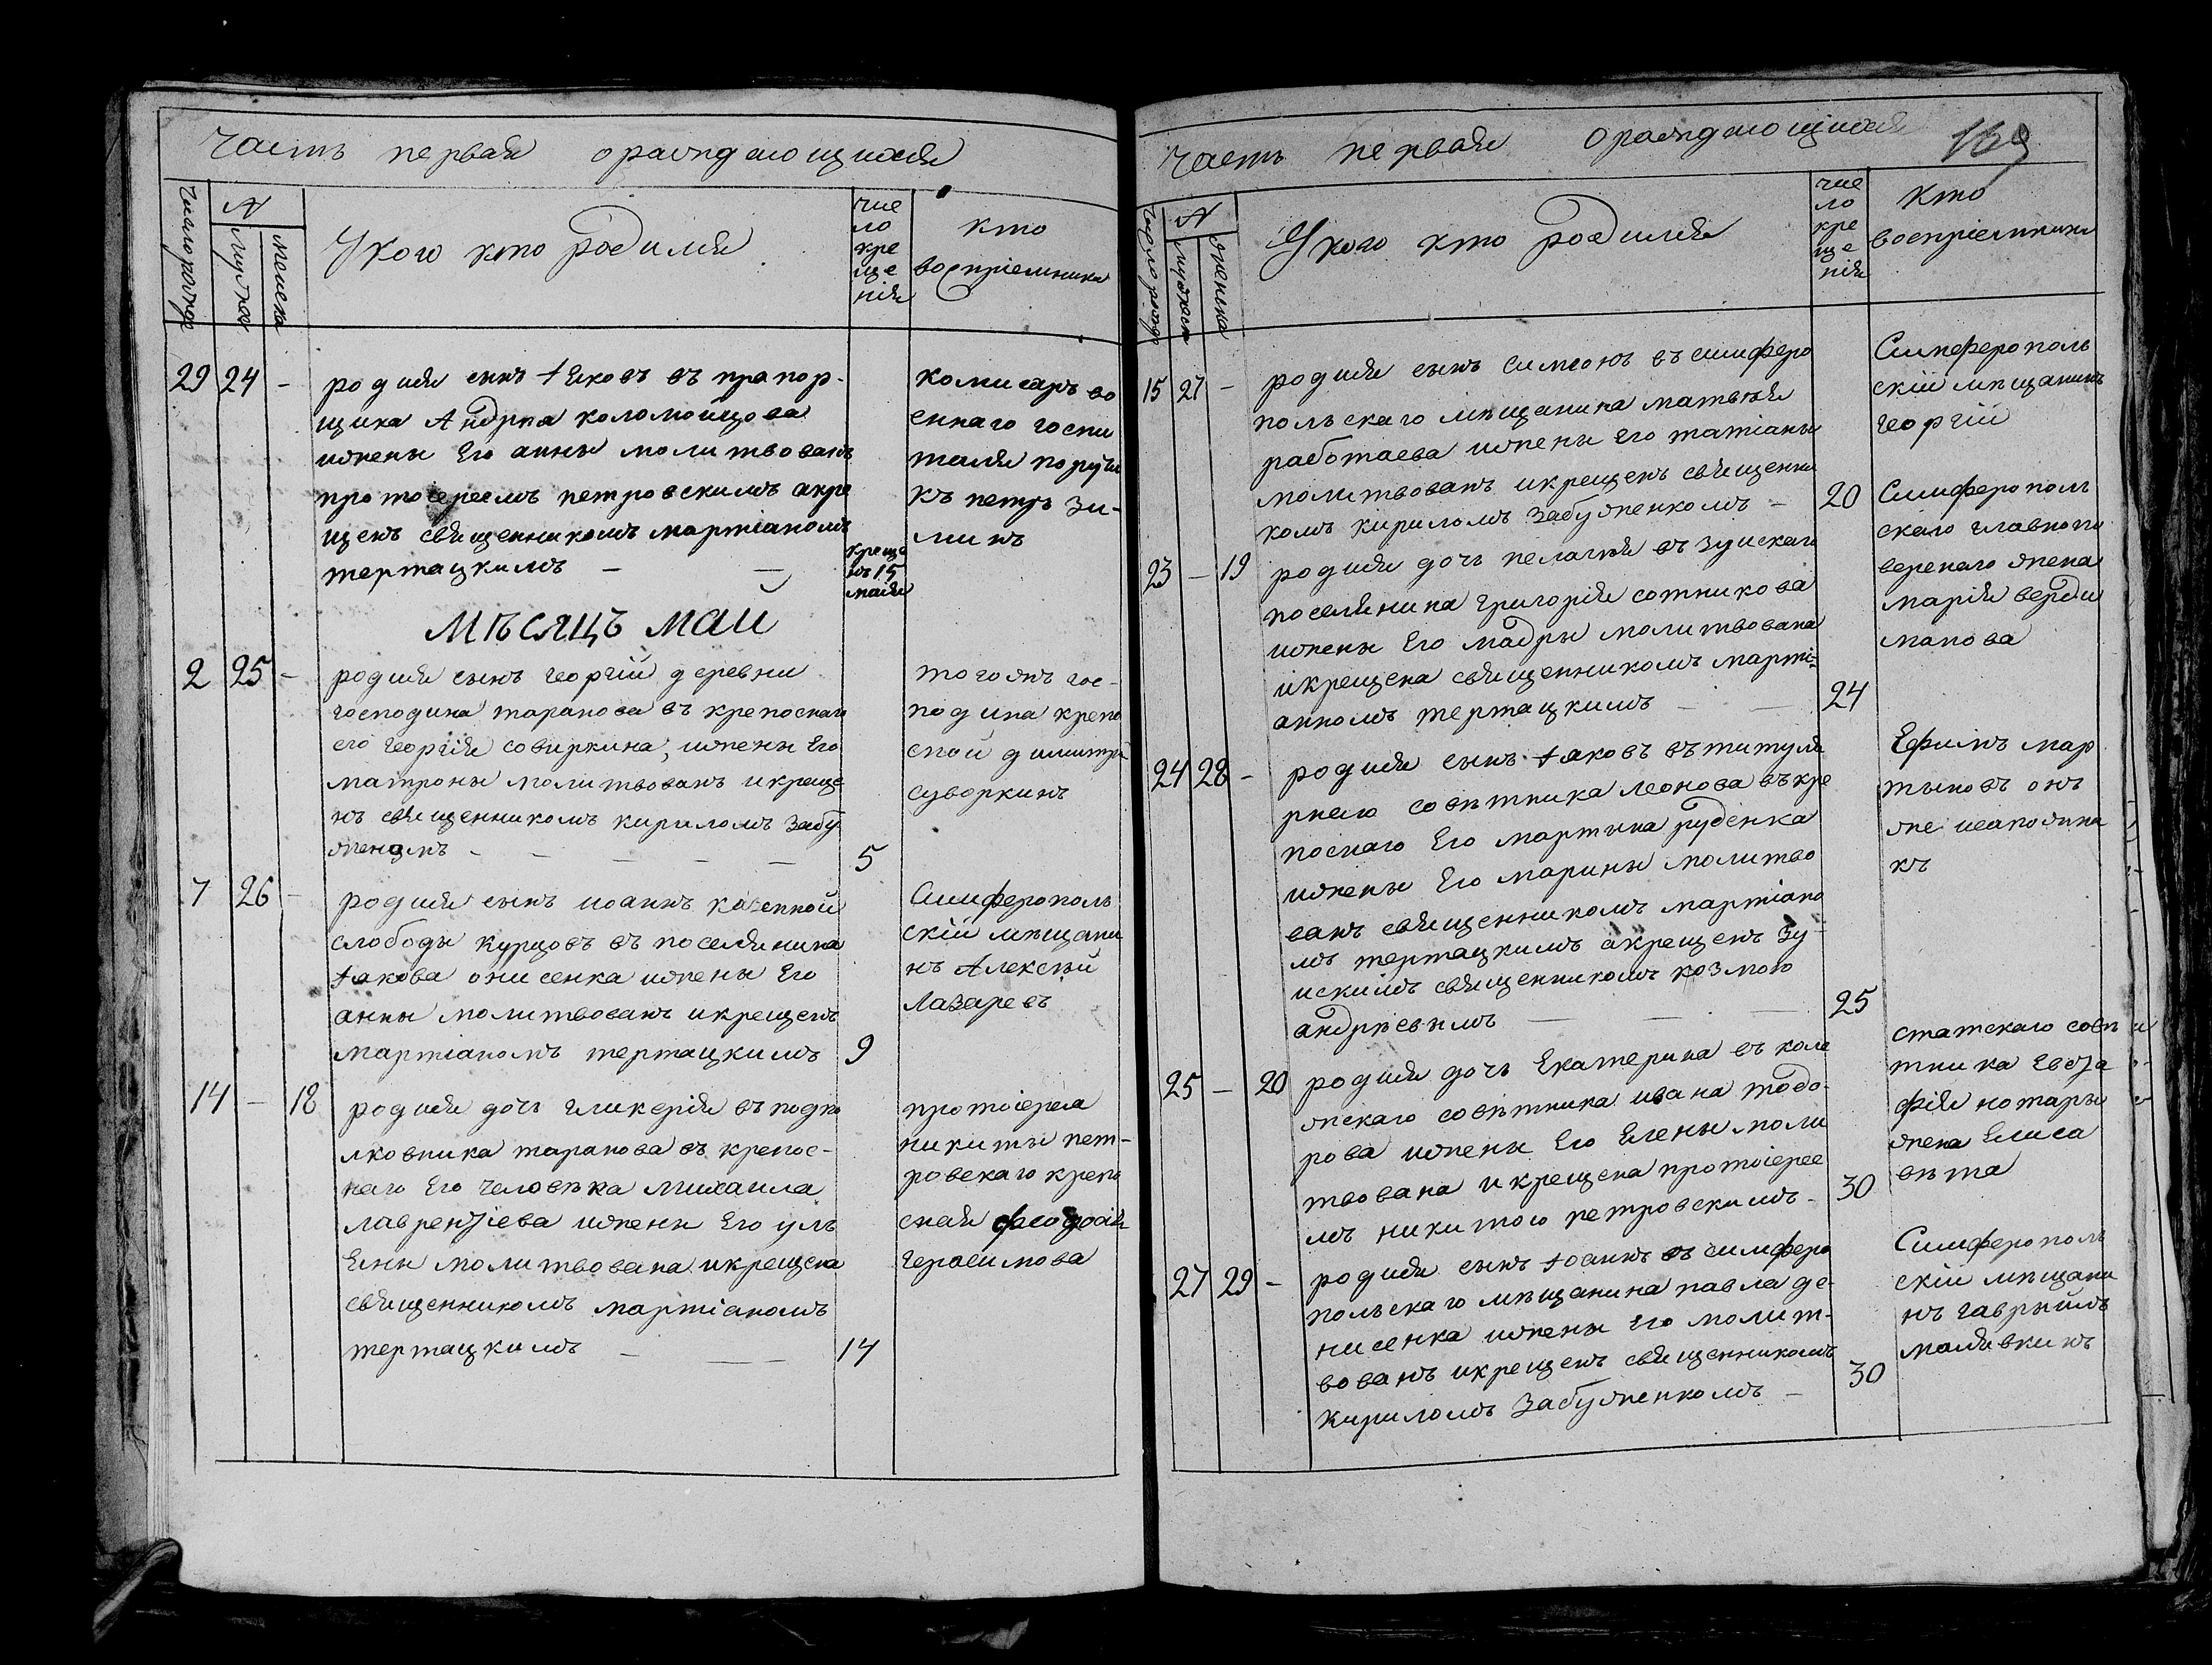 часть первая о раждающихся
число рожде
№
мужеска
женска
У кого кто родился
чис
ло
кре
ще
нія
кто
воспріемники
29 24 -
родился сынъ Іяковъ въ прапор-
щика Андрѣа коломойцова
ижены Его анны молитвованъ
протоіереемъ петровскимъ акре
щенъ священникомъ мартіаномъ
тертацкимъ - -
креще
нъ 15
маія
комисаръ во
еннаго госпи
таля поручи
къ петръ зи-
минъ
мѣсяцъ май
2 25 -
родился сынъ георгій деревни
господина таранова въ крепоснаго
его георгія совиркина, ижены Его
матроны молитвованъ икреще
нъ священникомъ кириломъ забу
женкомъ - - - - - 5
тогожъ гос-
подина крепо
сной димитрій
суворкинъ
7 26 -
родился сынъ иоаннъ казенной
слободы курцовъ въ поселянина
Іакова онисенка ижены Его
анны молитвованъ икрещенъ
мартіаномъ тертацкимъ 9
Симферополь
скій мѣщани
нъ Алексѣй
Лазаревъ
14 - 18
родися дочь гликерія въ подпо
лковника таранова въ крепос-
наго Его человѣка михаила
лаврентіева ижены Его уль
Яны молитвована икрещена
священникомъ мартіаномъ
тертацкимъ - - 14
протоіереа
никиты пет-
ровскаго крепо
сная феодосія
герасимова
часть первая о раждающихся
169
число рожде
№
мужеска
женска
У кого кто родился
чис
ло
кре
ще
нія
кто
воспріемники
15 27 -
родился сынъ симеонъ въ симферо
польскаго мѣщанина матвѣя
работаева ижены Его татіаны
молитвованъ икрещенъ священни
комъ кириломъ забуженкомъ - 20
Симферополь
скій мѣщанинъ
георгій
23 - 19
родися дочь пелагѣя въ зуискаго
поселянина григорія сотникова
ижены Его мадры молитвована
икрещена священникомъ марті-
анномъ тертацкимъ - - 24
Симферополь
скаго главнопо
веренаго жена
марія верди
манова
24 28 -
родился сынъ Іаковъ въ титуля
рнаго совѣтника леонова въ кре
поснаго Его мартина руденка
ижены Его марины молитво
ванъ священникомъ мартіано
мъ тертацкимъ акрещенъ зу-
искимъ священникомъ козмою
андрѣевымъ - - - 25
Ефимъ мар
тыновъ онъ
же исапожни
къ
25 - 20
родися дочь Екатерина въ коле
жскаго совѣтника ивана тодо-
рова ижены Его Елены моли
твована икрещена протоіерее
мъ никитою петровскимъ - 30
статскаго совѣ
тника евста
фія нотары
жена Елиса
вѣта
27 29 -
родился сынъ Іоаннъ въ симферо
польскаго мѣщанина павла де-
нисенка ижены Его молит-
вованъ икрещенъ священникомъ
кириломъ забуженкомъ - 30
Симферополь
скій мѣщани
нъ гаврыилъ
малявкинъ